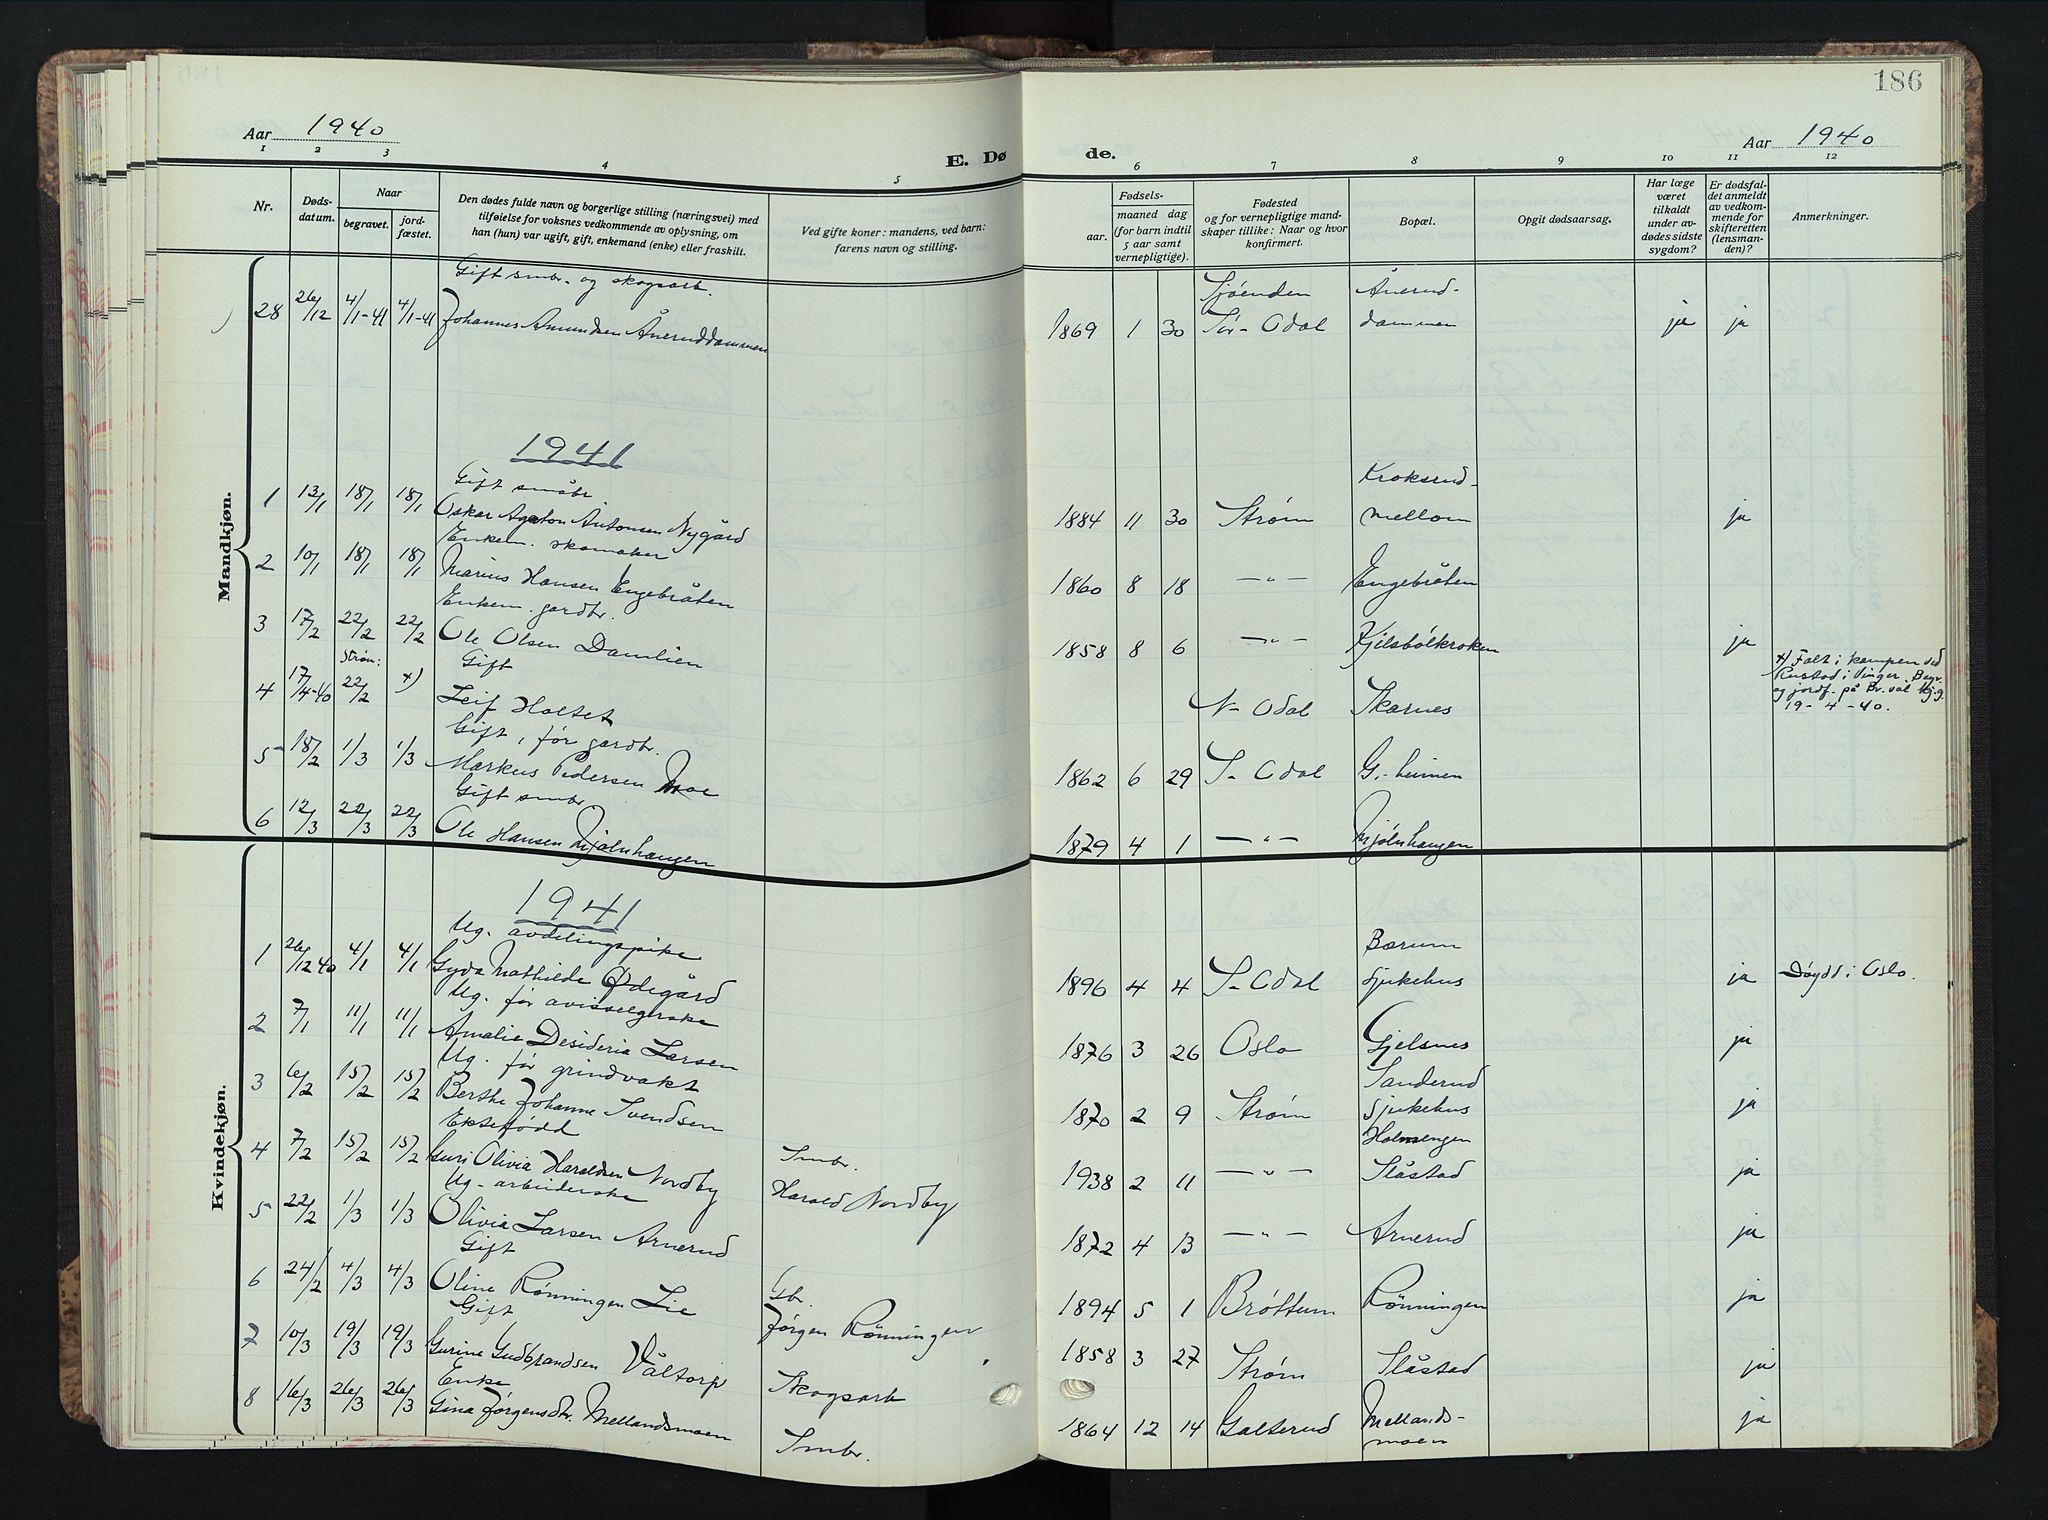 186
Aar 1940
E. Dø
de.
Aar 1940
1 2 3 4 5 6 7 8 9 10 11 12
Nr.
Døds-
datum.
Naar
begravet.
jord-
fæstet.
Den dødes fulde navn og borgerlige stilling (næringsvei) med
tilføielse for voksnes vedkommende av oplysning, om
han (hun) var ugift, gift, enkemand (enke) eller fraskilt.
Ved gifte koner: mandens, ved barn:
farens navn og stilling.
Fødsels-
aar.
maaned dag
(for barn indtil
5 aar samt
vernepligtige).
Fødested
og for vernepligtige mand-
skaper tillike: Naar og hvor
konfirmert.
Bopæl.
Opgit dødsaarsag.
Har læge
været
tilkaldt
under av-
dødes sidste
sygdom?
Er dødsfal-
det anmeldt
av vedkom-
mende for
skifteretten
(lensman-
den)?
Anmerkninger.
Mandkjøn.
Gift smbr. og skogsarb. Sjøenden Ånerud-
28 26/12 4/1-41 4/1-41 Johannes Amundsen Åneruddammen 1869 1 30 Sør-Odal dammen ja ja
1941
Gift småbr. Kroksrud-
1 13/1 18/1 18/1 Oskar Agaton Antonsen Nygård 1884 11 30 Strøm mellom ja
Enkem. skomaker
2 10/1 18/1 18/1 Marius Hansen Engebråten 1860 8 18 —"— Engebråten
Enkem. gardbr.
3 17/2 22/2 22/2 Ole Olsen Damlien 1858 8 6 —"— Kjilsbølkroken ja
Strøm: Gift x) Falt i kampen ved
4 17/4-40 22/2 x) Leif Holtet N-Odal Skarnes Rustad i Vinger. Begr.
og jordf. på Br.val kg.
19-4-40.
Gift, før gardbr.
5 18/2 1/3 1/3 Markus Pedersen Moe 1862 6 29 S-Odal G.-heimen
Gift smbr
6 12/3 22/3 22/3 Ole Hansen Mjølnhaugen 1879 4 1 —"— Mjølnhaugen
Kvindekjøn.
1941
Ug. avdelingspike Bærum
1 26/12 40 4/1 4/1 Gyda Mathilde Ødegård 1896 4 4 S-Odal sjukehus ja Døydd i Oslo.
Ug. før avisselgerske
2 7/1 11/1 11/1 Amalie Desideria Larsen 1876 3 26 Oslo Gjelsnes ja
Ug. før grindvakt Sanderud
3 6/2 15/2 15/2 Berthe Johanne Svendsen 1870 2 9 Strøm sjukehus ja
Ektefødd Smbr. Holmengen
4 7/2 15/2 15/2 Guri Olivia Haraldsen Nordby Harald Nordby 1938 2 11 —"— Slåstad ja
Ug. arbeiderske
5 22/2 1/3 1/3 Olivia Larsen Arnerud 1872 4 13 —"— Arnerud ja
Gift Gbr.
6 24/2 4/3 4/3 Oline Rønningen Lie Jørgen Rønningen 1894 5 1 Brøttum Rønningen ja
Gift
7 10/3 19/3 19/3 Gurine Gudbrandsen Våltorp Skogsarb 1858 3 27 Strøm Slåstad ja
Enke
8 16/3 26/3 26/3 Gina Jørgensdtr. Mellandsmoen Smbr. 1864 12 14 Galterud Mellands-
moen ja